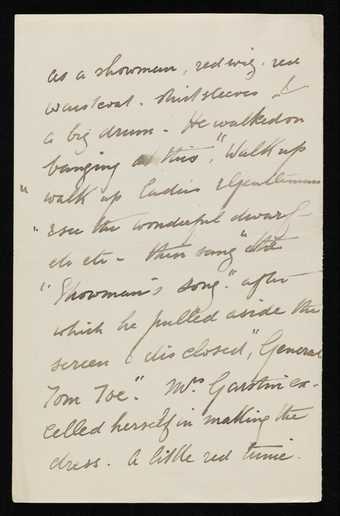 as a showman, red wig, red
waistcoat. shirt sleeves &
a big drum - He walked on
banging at this, "Walk up
"walk up ladies & Gentlemen
"& see the wonderful dwarf
etc etc - then sang "the
"Showman's song." after
which he pulled aside the
screen & disclosed, "General
Tom Toe." Mrs Garstin ex-
celled herself in making the
dress. A little red tunic.